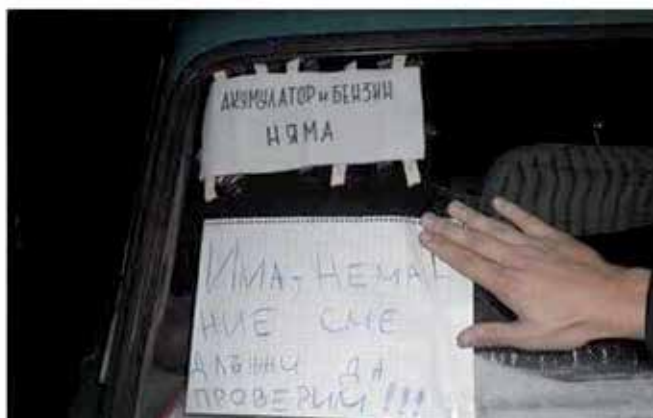 АКУМУЛАТОР и БЕНЗИН
НЯМА
ИМА, НЕМА
НИЕ СМЕ
ДЛЪЖНИ ДА
ПРОВЕРИМ!!!